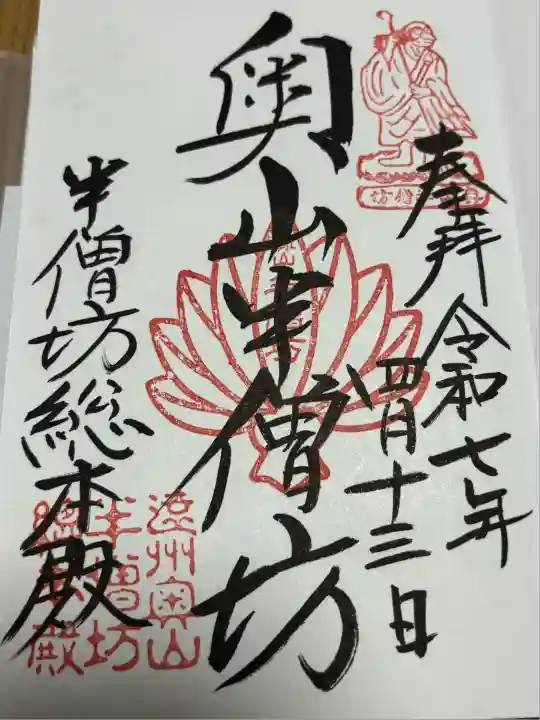 奉拝
令和七年
四月十三日
奥山半僧坊
半僧坊総本殿
遠州奥山
半僧坊
總本殿